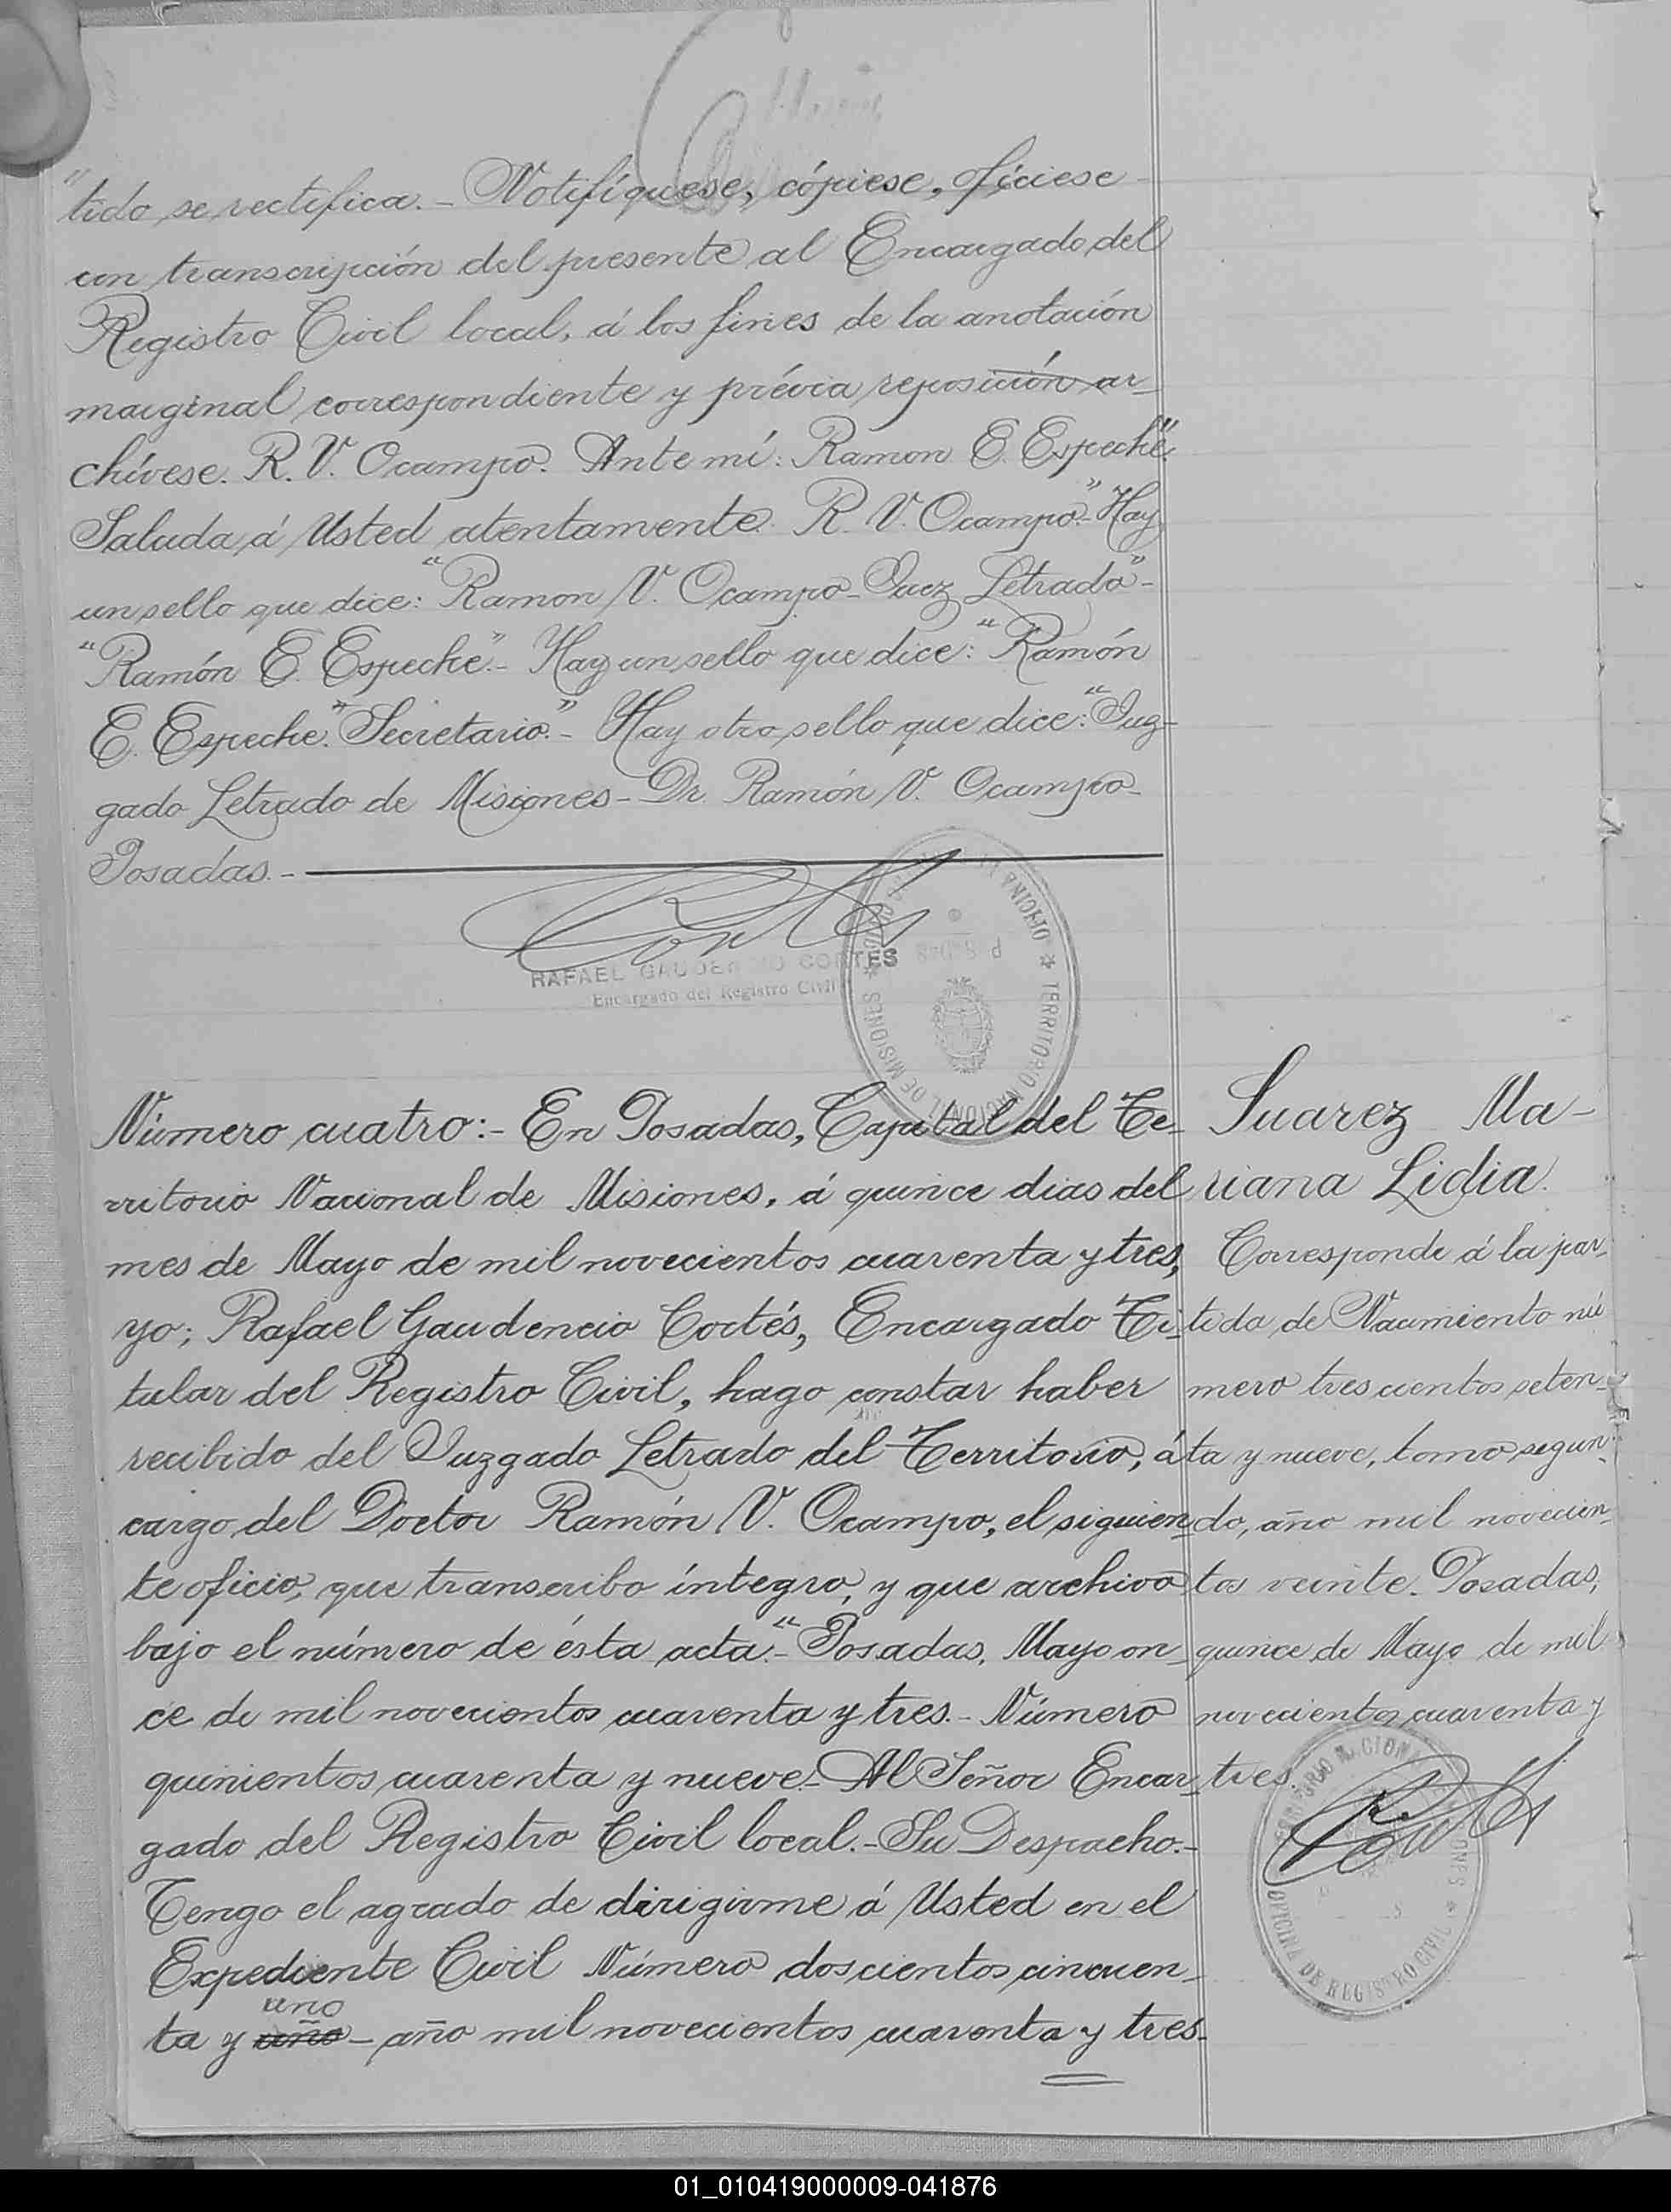 "tido se rectifica.- Notifíquese, cópiese, ofíciese
con transcripción del presente al Encargado del
Registro Civil local, á los fines de la anotación
marginal correspondiente y prévia reposición ar-
chívese. R. V. Ocampo. Ante mí: Ramon E. Espeche".
Saluda á Usted atentamente. R. V. Ocampo".- Hay
un sello que dice: "Ramon V. Ocampo- Juez Letrado"-
"Ramón E. Espeche".- Hay un sello que dice: "Ramón
E. Espeche." Secretario".- Hay otro sello que dice: "Juz-
gado Letrado de Misiones- Dr. Ramón V. Ocampo-
Posadas.-
Cortés
RAFAEL GAUDENCIO CORTES
Encargado del Registro Civil
TERRITORIO NACIONAL DE MISIONES
OFICINA
Número cuatro:- En Posadas, Capital del Te-
rritorio Nacional de Misiones, á quince dias del
mes de Mayo de mil novecientos cuarenta y tres,
yo; Rafael Gaudencio Cortés, Encargado Ti-
tular del Registro Civil, hago constar haber
recibido del Juzgado Letrado del Territorio, á
cargo del Doctor Ramón V. Ocampo, el siguien-
te oficio, que transcribo íntegro, y que archivo
bajo el número de ésta acta.- "Posadas, Mayo on-
ce de mil novecientos cuarenta y tres.- Número
quinientos cuarenta y nueve.- Al Señor Encar-
gado del Registro Civil local.- Su Despacho.-
Tengo el agrado de dirigirme á Usted en el
Expediente Civil Número doscientos cincuen-
uno
ta y año - año mil novecientos cuarenta y tres-
Suarez Ma-
riana Lidia.
Corresponde á la par-
tida de Nacimiento nú
mero trescientos seten-
ta y nueve, tomo segun-
do, año mil novecien-
tos veinte. Posadas,
quince de Mayo de mil
novecientos cuarenta y
tres.
Cortés
OFICINA DE REGISTRO CIVIL
01_010419000009-041876